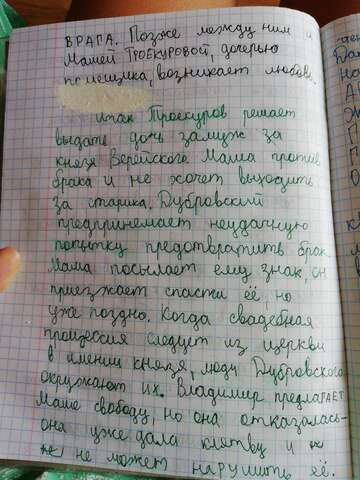 ВРАГА. Позже между ним и
Машей ТРОЕКУРОВОЙ, дочерью
помещика, возникает любовь.
Итак Троекуров решает
выдать дочь замуж за
князя Верейского. Маша против
брака и не хочет выходить
за старика. Дубровский
предпринемает неудачную
попытку предотвратить брак.
Маша посылает ему знак, он
приезжает спасти её, но
уже поздно. Когда свадебная
процессия следует из церкви
в имении князя, люди Дубровского
окружают их. Владимир предлагает
Маше свободу, но она отказалась-
она уже дала клятву и
не может нарушить её.